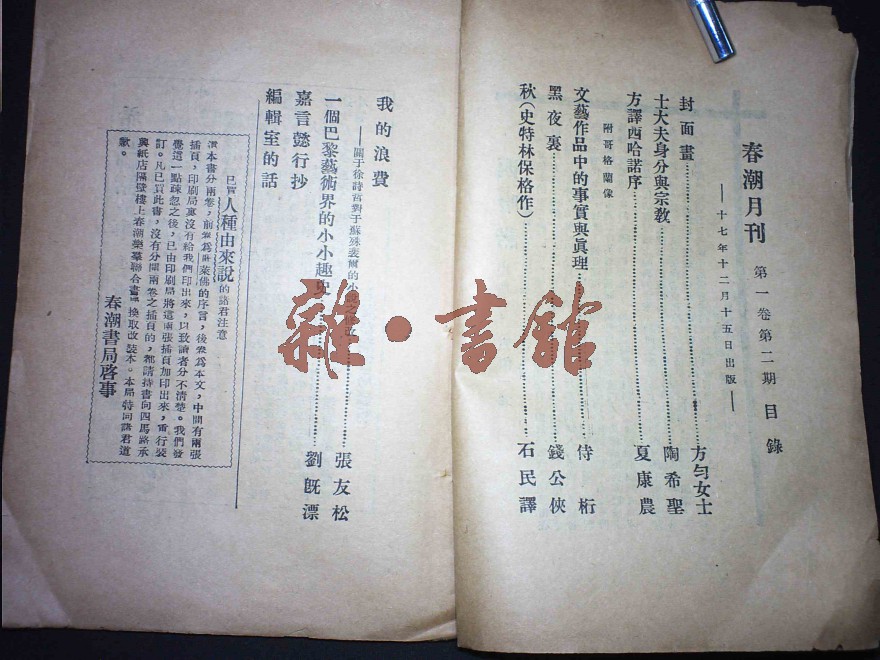 春潮月刊 第一卷第二期目錄
——十七年十二月十五日出版——
封面畫……方勻女士
士大夫身分與宗教……陶希聖
方譯西哈諾序……夏康農
附哥格蘭像
文藝作品中的事實與眞理……侍桁
黑夜裏……錢公俠
秋(史特林保格作)……石民譯
我的浪費
——關于徐詩哲對于蘇殊裴爾的小說之
一個巴黎藝術界的小小趣史……張友松
嘉言懿行抄……劉旣漂
編輯室的話
已買人種由來說的諸君注意
本書分兩卷,前卷為萊佛的序言,後卷為本文,中間有兩張
插頁,印刷局裏沒有給我們印出來,以致讀者分不淸楚。我們發
覺這一點疎忽之後,已由印刷局將這兩張插頁加印出來,重行裝
訂。凡已買此書,沒有分開兩卷之插頁的,都請持書向四馬路承
興紙店隔壁樓上春潮樂羣聯合書 換取改裝本。本局特向諸君道
歉。
春潮書局啓事
雜·書館